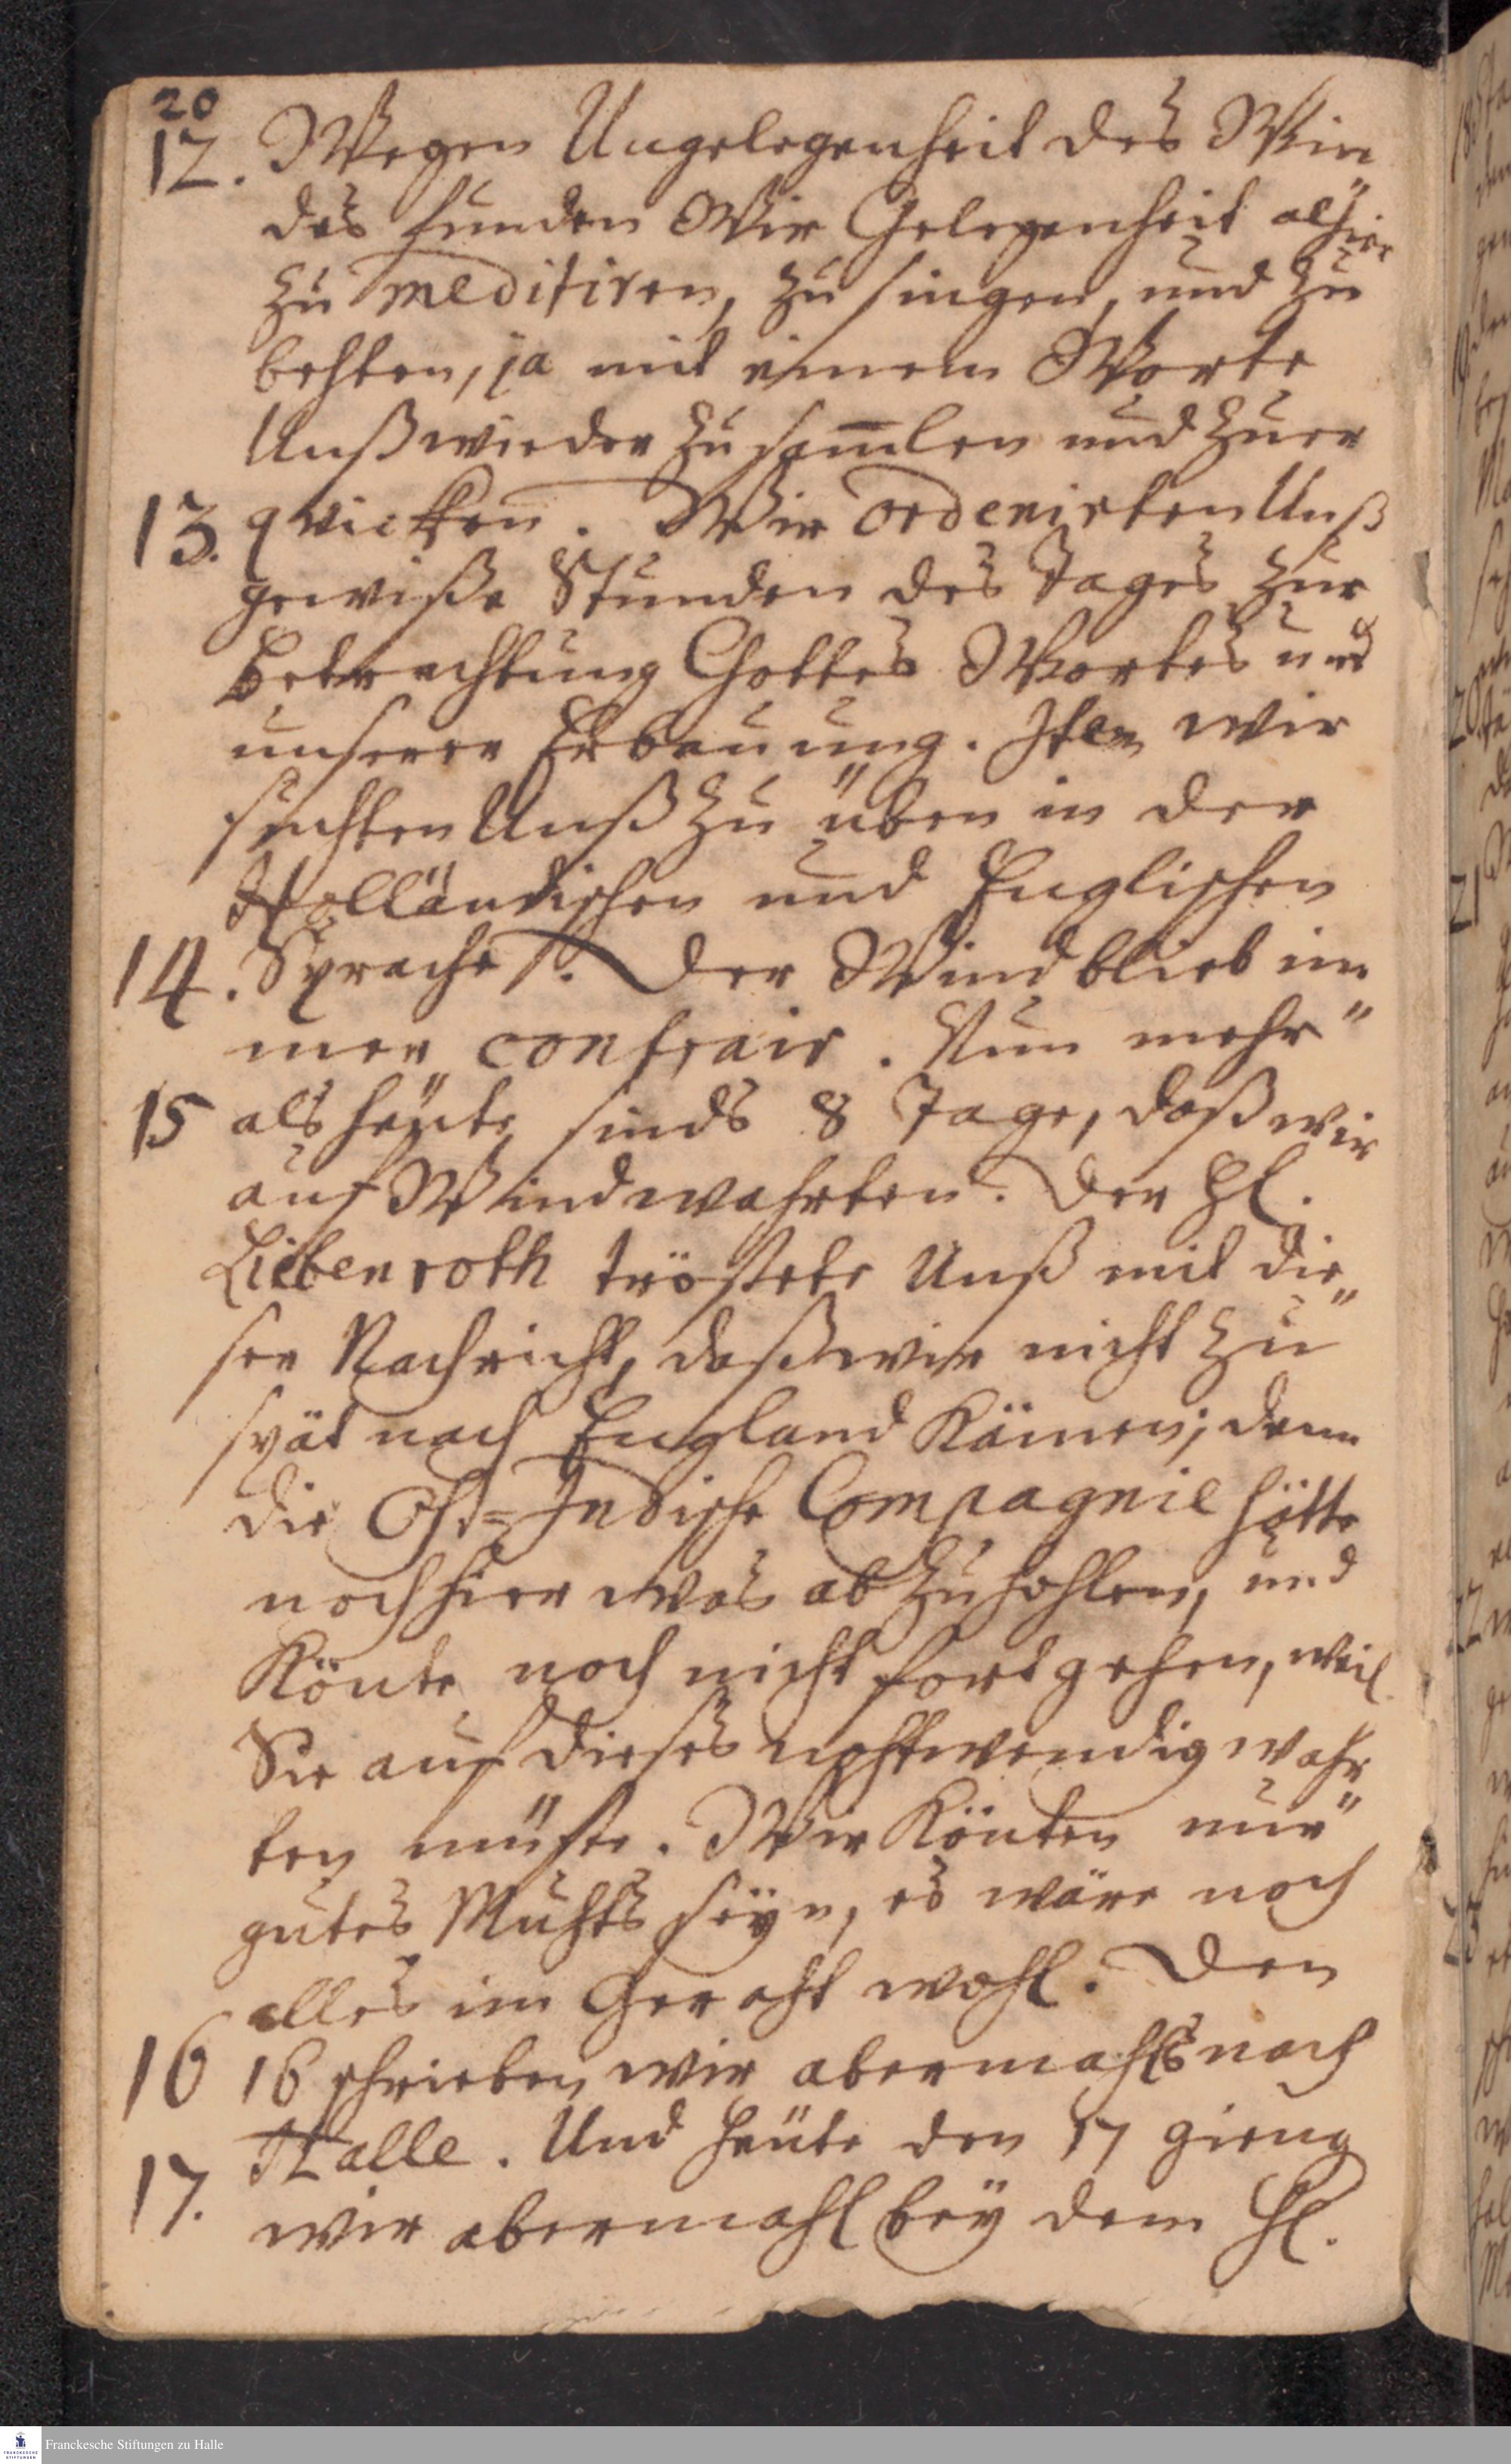 20
12. Wegen Ungelegenheit des Win„
des funden Wir Gelegenheit alhier
zu meditiren, zu singen, und zu
behten, ja mit einem Worte
Unß wieder zu sam̅len und zu er
13. qvicken. Wir ordenirten Unß
gewiße Stunden des Tages zur
Betrachtung Gottes Wortes und
unserer Erbauung. Item wir
suchten Unß zu üben in der
Holländischen und Englischen
14. Sprache. Der Wind blieb im
mer contrair. Nun mehr„
15 als heute sinds 8 Tage, daß wir
auf Wind wahrten. Der Hl.
Liebenroth tröstete Unß mit die„
ser Nachricht, daß wir nicht zu
spät nach England Kämen; denn
die Ost=Indische Compagnie hätte
noch hier was abzuhohlen, und
Könte noch nicht fortgehen, weil
Sie auf dieses nohtwendig wahr„
ten müste. Wir Könten nur
gutes Muhts seyn, es wäre noch
alles im Geraht wohl. Den
16 16 schrieben wir abermahls nach
Halle. Und heute den 17 gieng
17. wir abermahl bey dem Hl.
Franckesche Stiftungen zu Halle